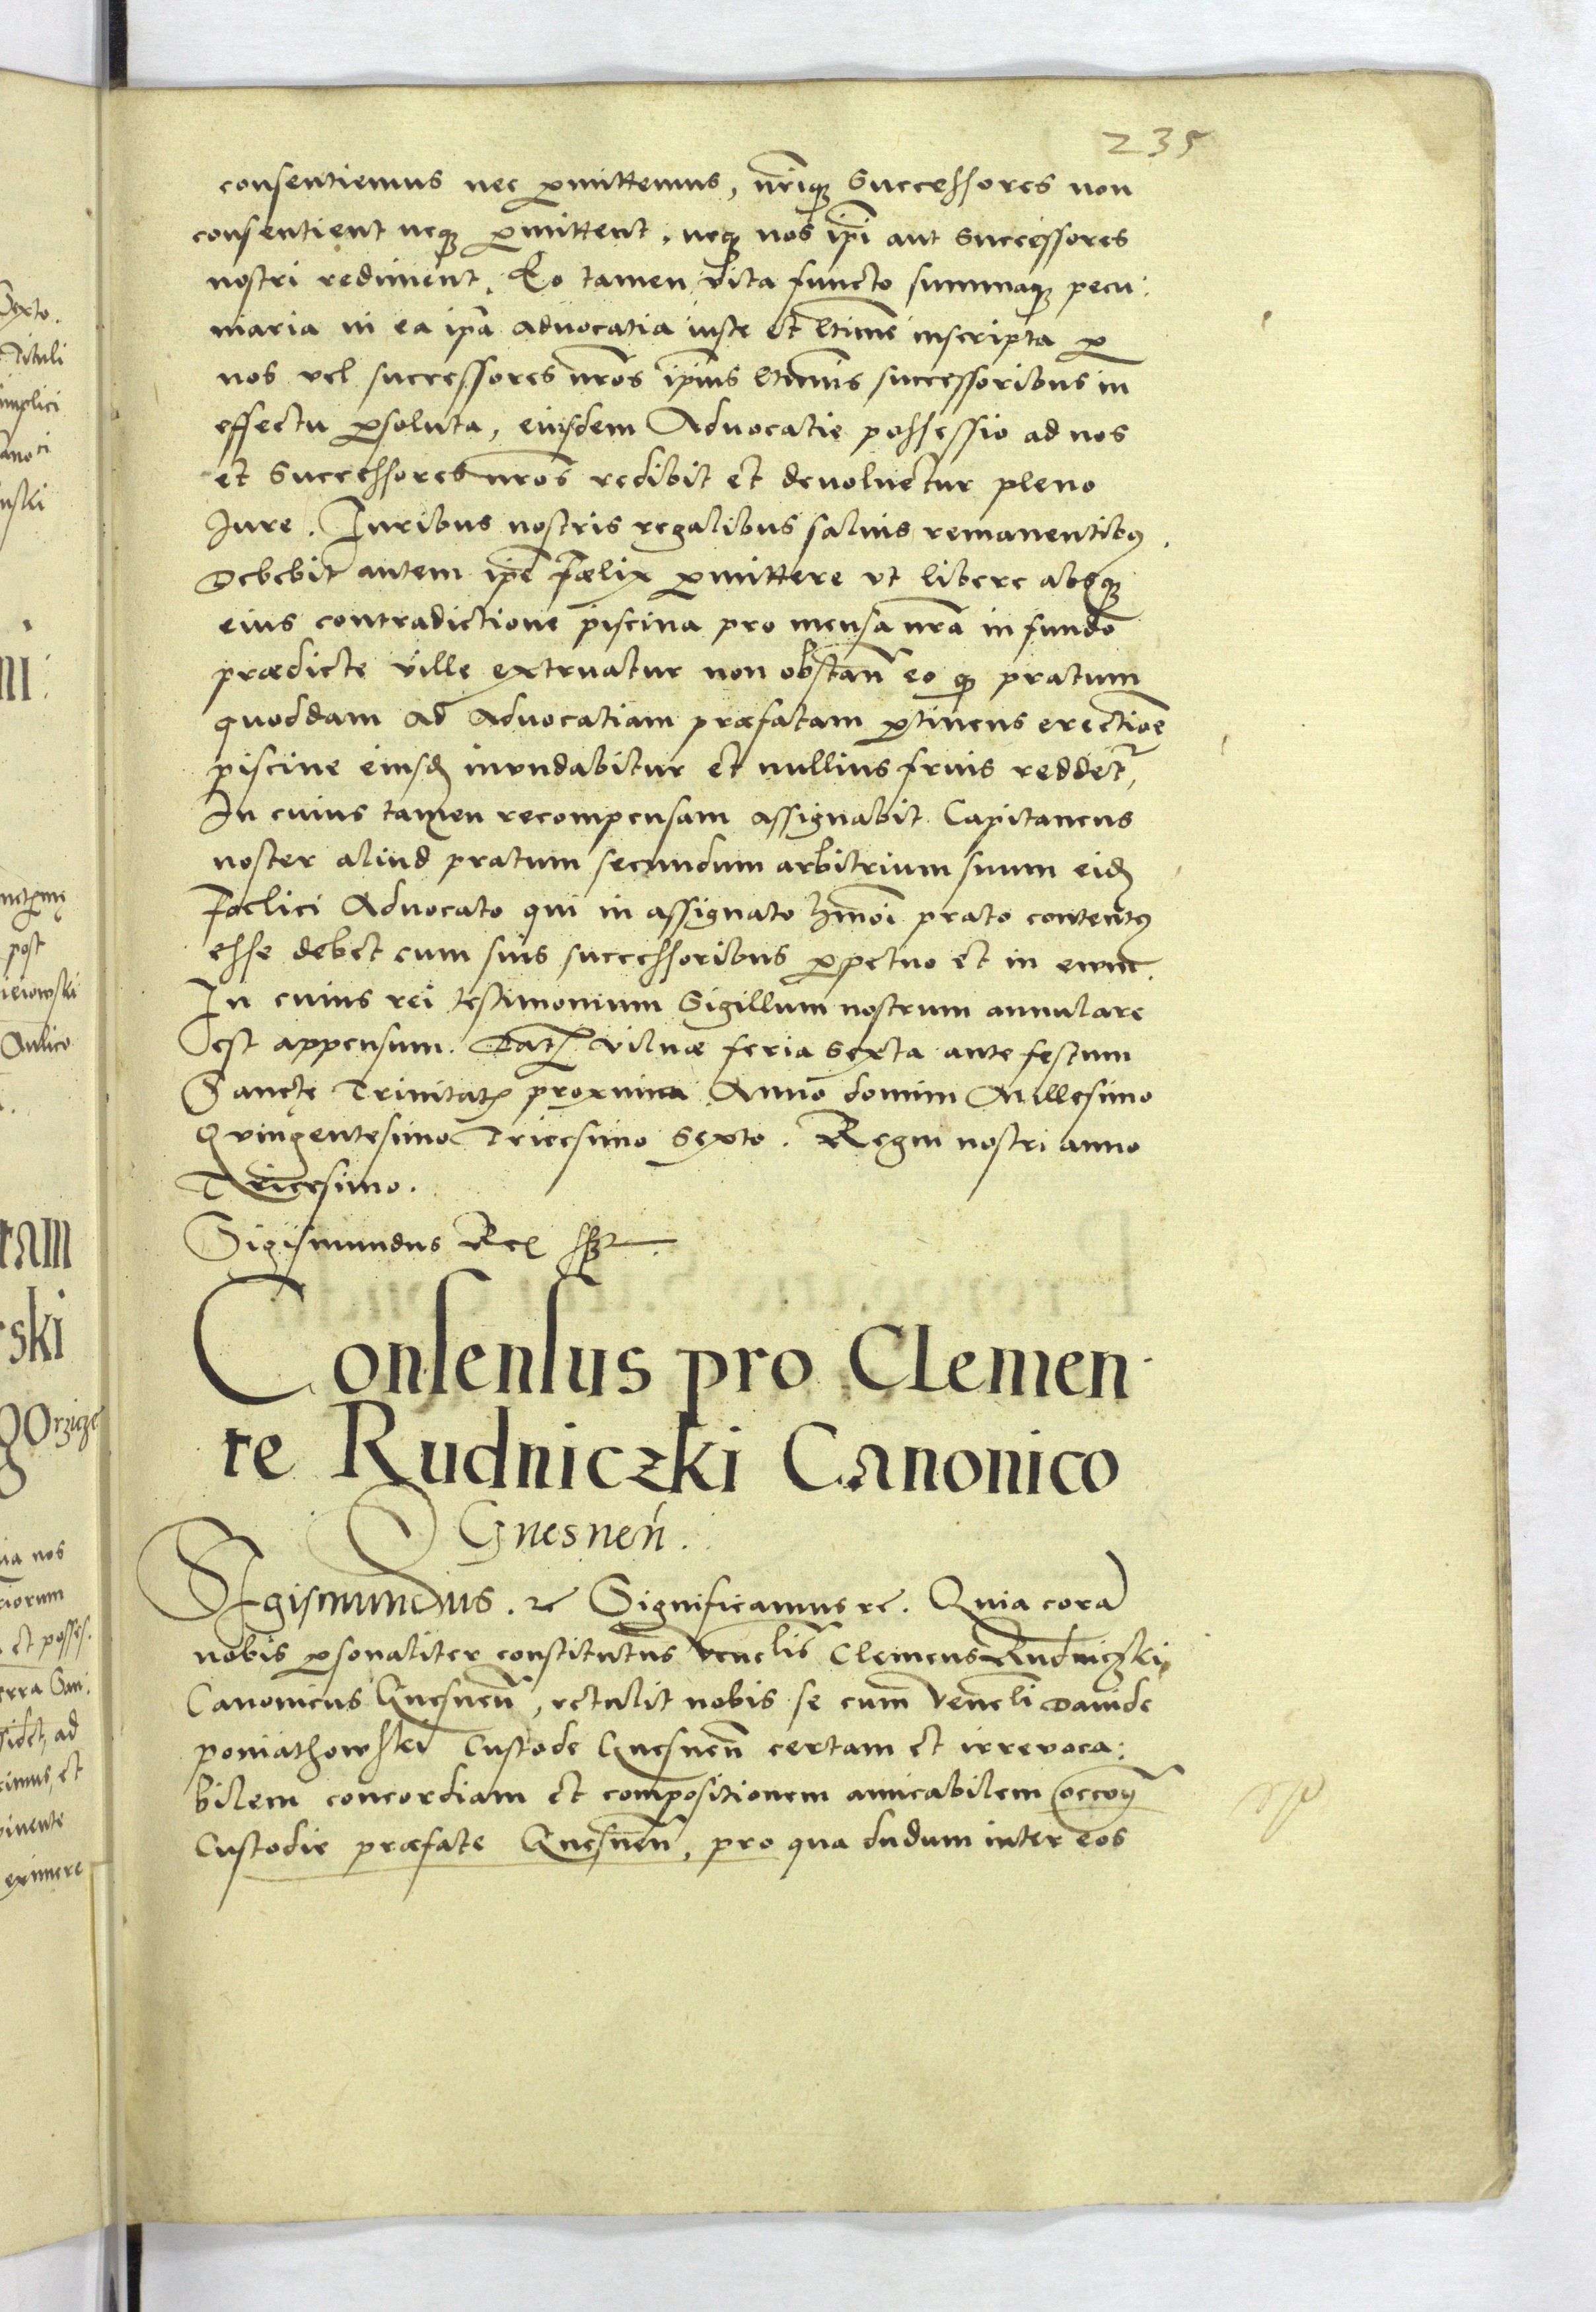 235
consentiemus nec ꝑmittemus, nr̃iqꝫ Successores non
consentient neqꝫ ꝑmittent, neqꝫ nos ip̃i aut Successores
nostri rediment. Eo tamen vita functo summaqꝫ pecu:
niaria in ea ip̃a advocatia iuste et l̃time inscripta ꝑ
nos vel successores nr̃os ip̃ius l̃timis successoribus in
effectu ꝑsoluta, eiusdem Advocatie possessio ad nos
et Successores nr̃os redibit et devoluetur pleno
Jure. Juribus nostris regalibus saluis remanentibꝰ.
Debebit autem ip̃e Fælix ꝑmittere vt libere absqꝫ
eius contradictione piscina pro mensa nr̃a in fundo
prædicte ville extruatur non obstan̄ eo qꝫ pratum
quoddam ad Advocatiam præfatam ꝑtinens erectiõe
piscine eiusd̃ inundabitur et nullius fruis reddet᷑,
In cuius tamen recompensam assignabit Capitaneus
noster aliud pratum secundum arbitrium suum eid̃
Foelici Advocato qui in assignato hm̃oi prato contentꝰ
esse debet cum suis successoribus ꝑpetuo et in evum.
In cuius rei testimonium Sigillum nostrum annulare
est appensum. Datꝭ Vilnæ feria Sexta ante festum
Sanctę Trinitatꝭ proxima Anno domini Millesimo
Quingentesimo Tricesimo Sexto. Regni nostri anno
Tricesimo.
Sigismundus Rex sst
Consensus pro Clemen
te Rudniczki Canonico
Gnesneń.
Sigismundus. ꝛc Significamus ꝛc. Quia corã
nobis ꝑsonaliter constitutus Venełis Clemens Rudniczki
Canonicus Gnesneñ, retulit nobis se cum Venełi Dauide
poniathowski Custode Gnesneñ certam et irrevoca:
bilem concordiam et compositionem amicabilem occoñe
Custodie præfate Gnesneñ, pro qua dudum inter eos